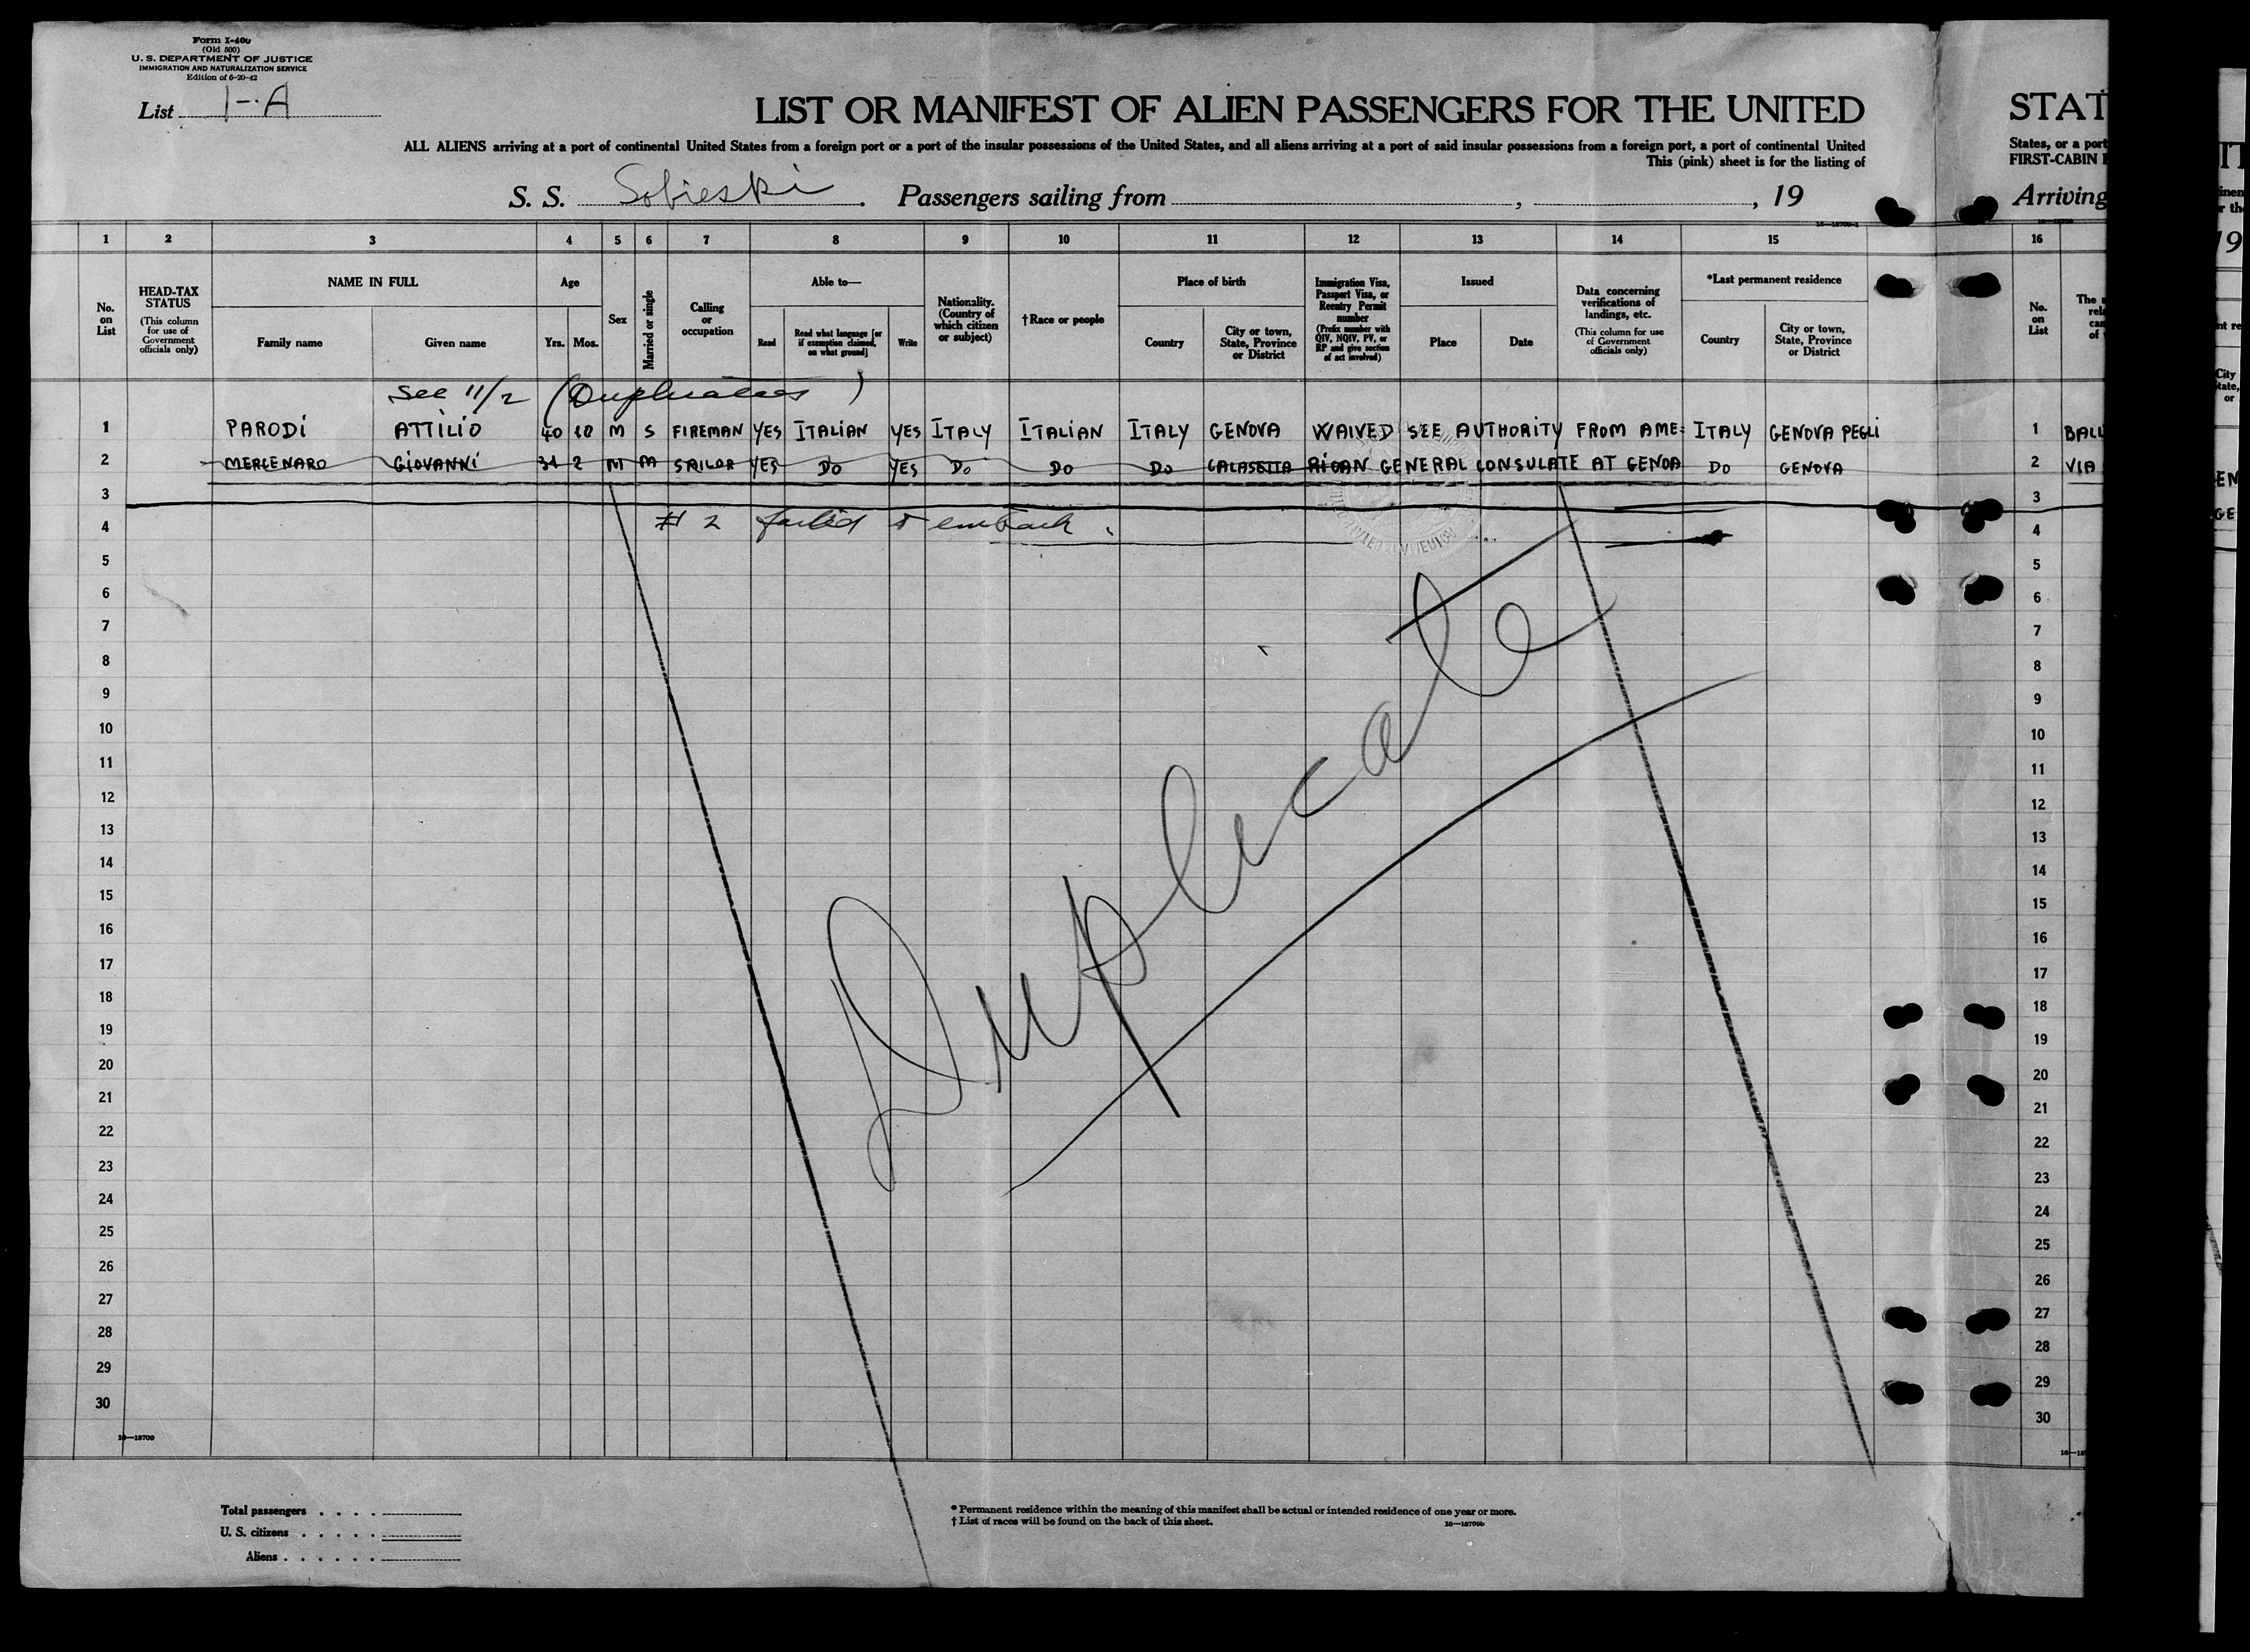 Form I-400
(Old 500)
U. S. DEPARTMENT OF JUSTICE
IMMIGRATION AND NATURALIZATION SERVICE
Edition of 6-20-42
List 1-A
LIST OR MANIFEST OF ALIEN PASSENGERS FOR THE UNITED
STAT
ALL ALIENS arriving at a port of continental United States from a foreign port or a port of the insular possessions of the United States, and all aliens arriving at a port of said insular possessions from a foreign port, a port of continental United
States, or a port
This (pink) sheet is for the listing of
FIRST-CABIN
S. S. Sobieski. Passengers sailing from , , 19
Arriving
1 2 3 4 5 6 7 8 9 10 11 12 13 14 15 16
No. on List
HEAD-TAX STATUS
(This column for use of Government officials only)
NAME IN FULL
Family name
Given name
Age
Yrs. Mos.
Sex
Married or single
Calling or occupation
Able to—
Read
Read what language [or if exemption claimed, on what ground]
Write
Nationality. (Country of which citizen or subject)
†Race or people
Place of birth
Country
City or town, State, Province or District
Immigration Visa, Passport Visa, or Reentry Permit number
(Prefix number with QIV, NQIV, PV, or RP and give section of act involved)
Issued
Place
Date
Data concerning verifications of landings, etc.
(This column for use of Government officials only)
*Last permanent residence
Country
City or town, State, Province or District
No. on List
See 11/2 (Duplicates)
1 PARODI ATTILIO 40 10 M S FIREMAN YES ITALIAN YES ITALY ITALIAN ITALY GENOVA WAIVED SEE AUTHORITY FROM AME= ITALY GENOVA PEGLI 1 BALL
2 MERCENARO GIOVANNI 31 2 M M SAILOR YES DO YES DO DO DO CALASETTA RICAN GENERAL CONSULATE AT GENOA DO GENOVA 2 VIA
3 3
4 # 2 failed to embark. 4
5 5
6 6
7 7
8 8
9 9
10 10
11 11
12 12
13 13
14 14
15 15
16 16
17 17
18 18
19 19
20 20
21 21
22 22
23 23
24 24
25 25
26 26
27 27
28 28
29 29
30 30
Duplicate
16—18709
Total passengers . . . .
U. S. citizens . . . . .
Aliens . . . . . .
* Permanent residence within the meaning of this manifest shall be actual or intended residence of one year or more.
† List of races will be found on the back of this sheet.
16—18709b